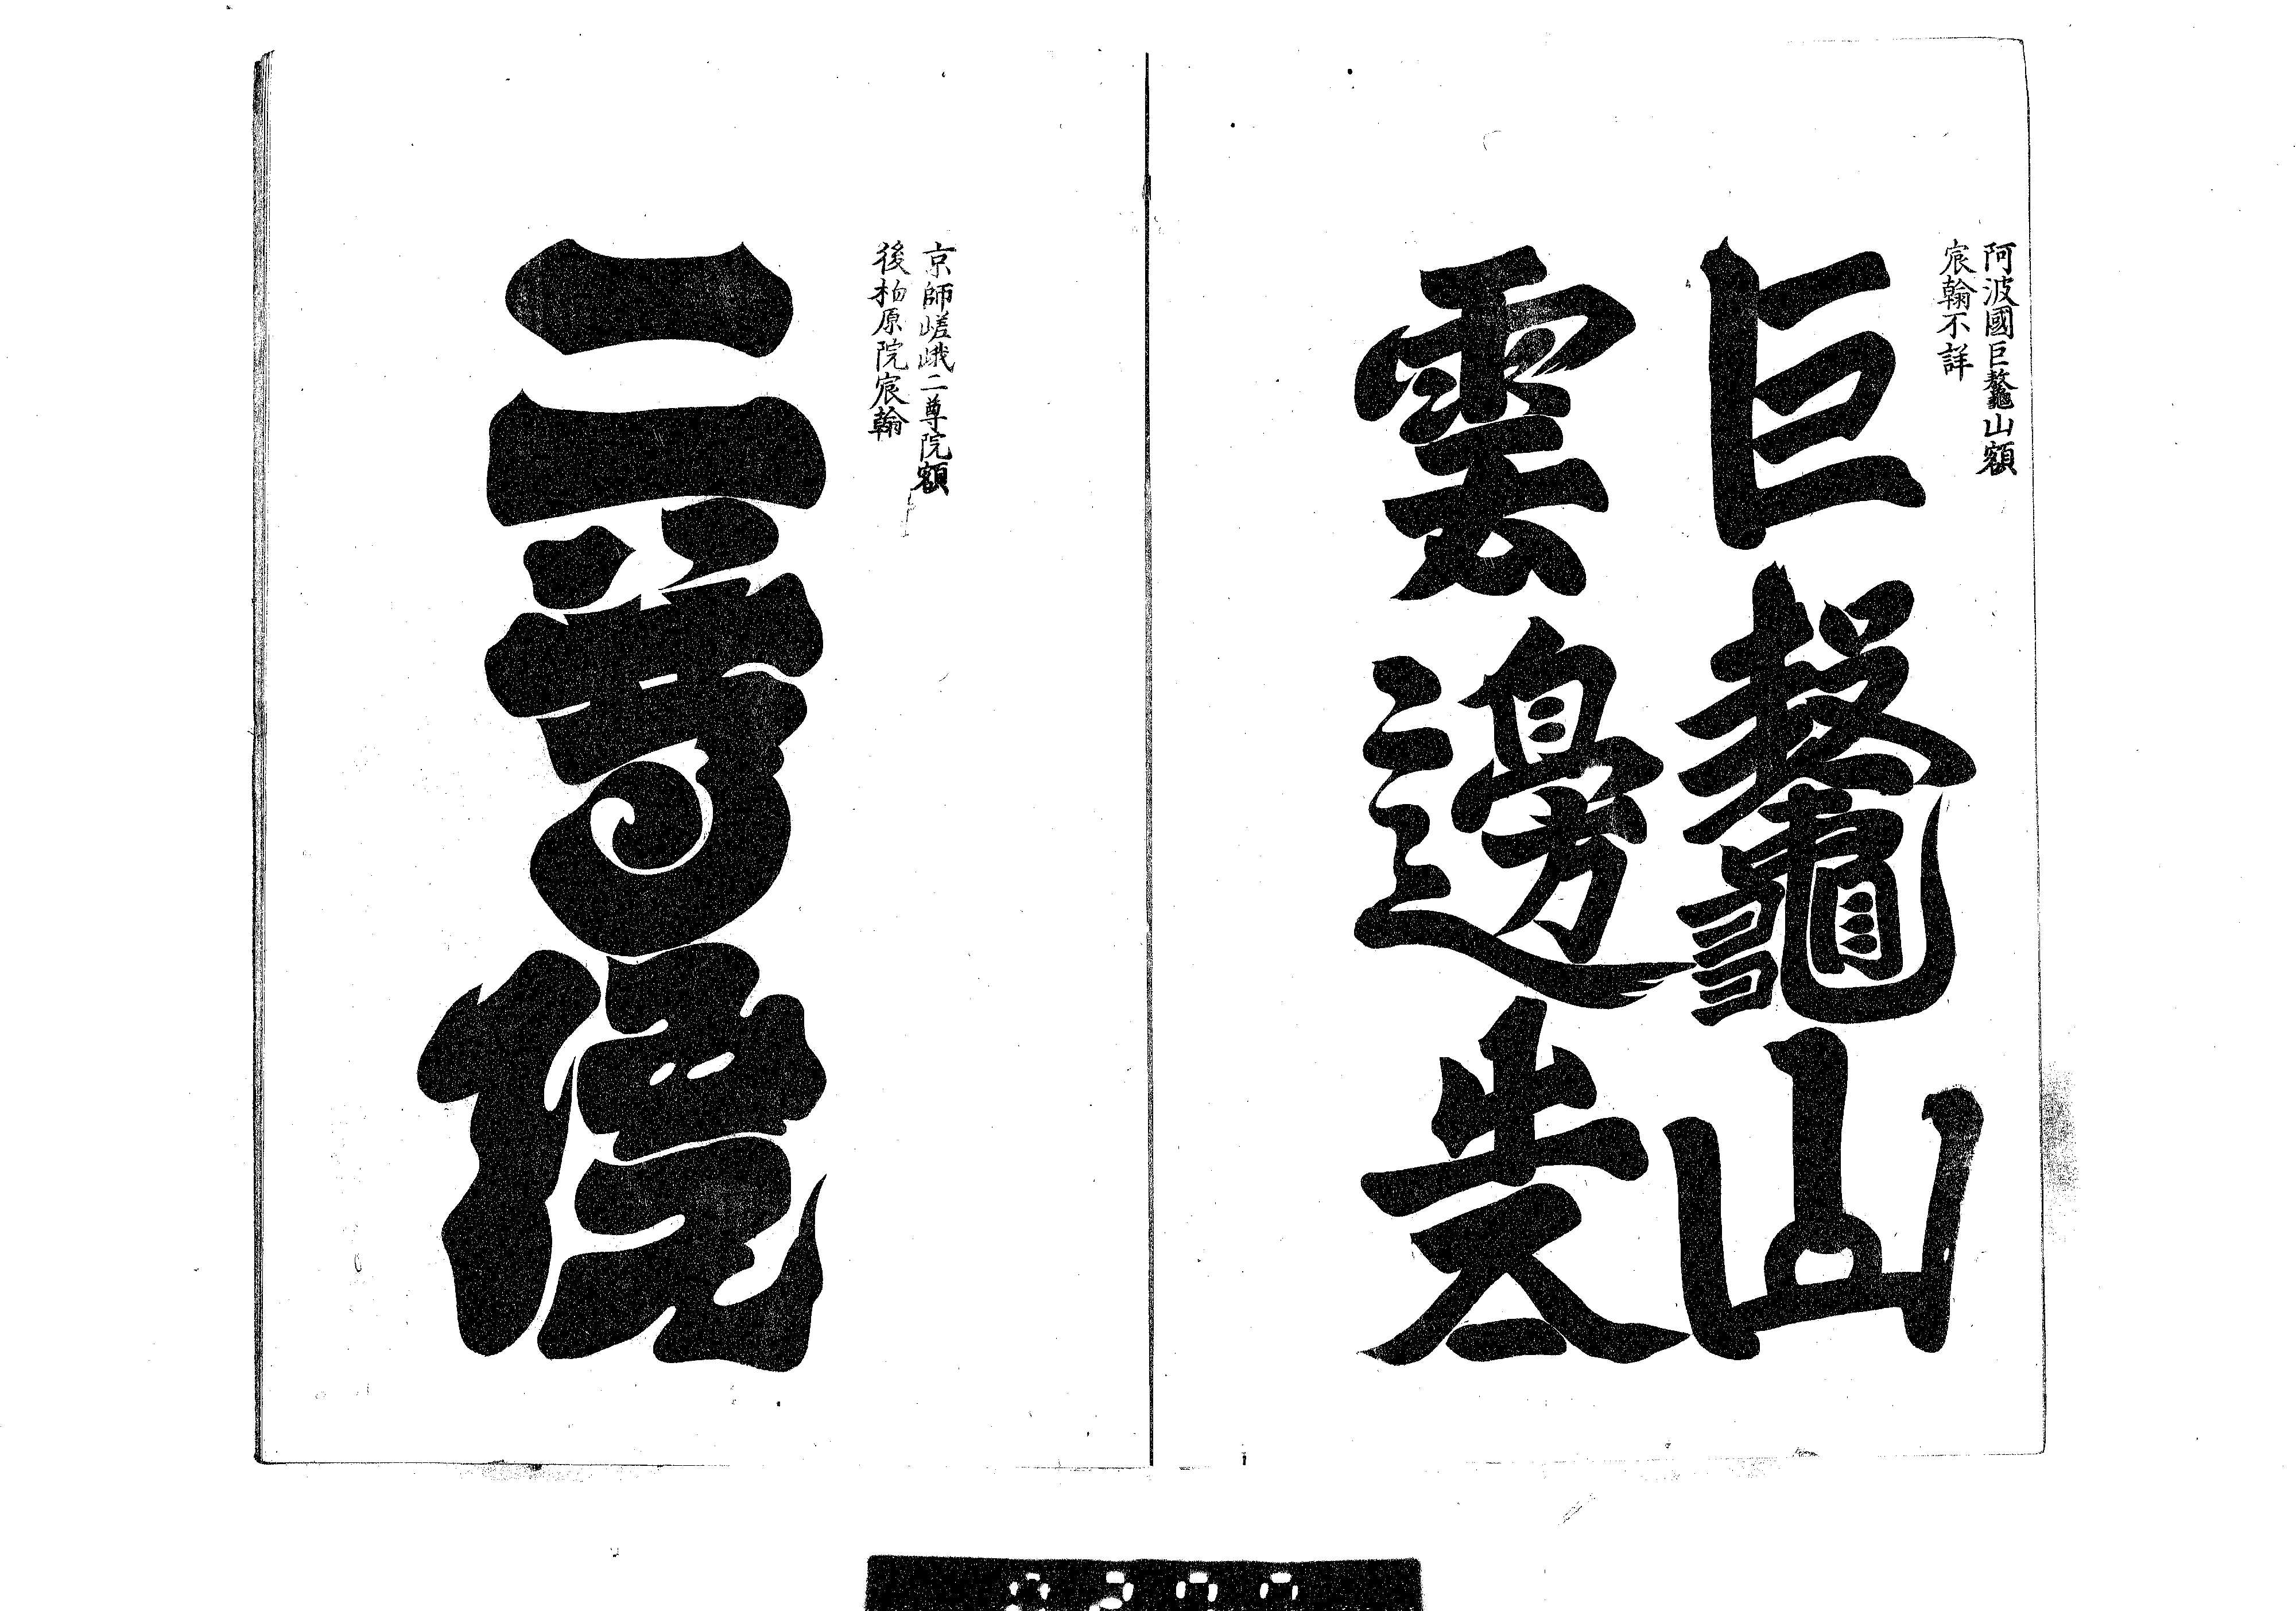 阿波國巨鼇山額
宸翰不詳
巨鼇山
雲邊寺
京師嵯峨二尊院額
後柏原院宸翰
二尊院